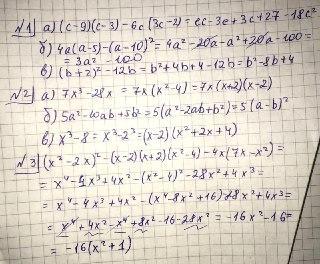 №1) а) (c-9)(c-3) - 6c(3c-2) = cc - 3c + 3c + 27 - 18c²
б) 4a(a-5) - (a-10)² = 4a² - 20a - a² + 20a - 100 =
= 3a² - 100
в) (b+2)² - 12b = b² + 4b + 4 - 12b = b² - 8b + 4
№2) а) 7x³ - 28x = 7x(x² - 4) = 7x(x+2)(x-2)
б) 5a² - 10ab + 5b² = 5(a² - 2ab + b²) = 5(a-b)²
в) x³ - 8 = x³ - 2³ = (x-2)(x² + 2x + 4)
№3) (x² - 2x)² - (x-2)(x+2)(x²-4) - 4x(7x - x²) =
= x⁴ - 4x³ + 4x² - (x²-4)² - 28x² + 4x³ =
= x⁴ - 4x³ + 4x² - (x⁴ - 8x² + 16) - 28x² + 4x³ =
= x⁴ + 4x² - x⁴ + 8x² - 16 - 28x² = -16x² - 16 =
= -16(x² + 1)